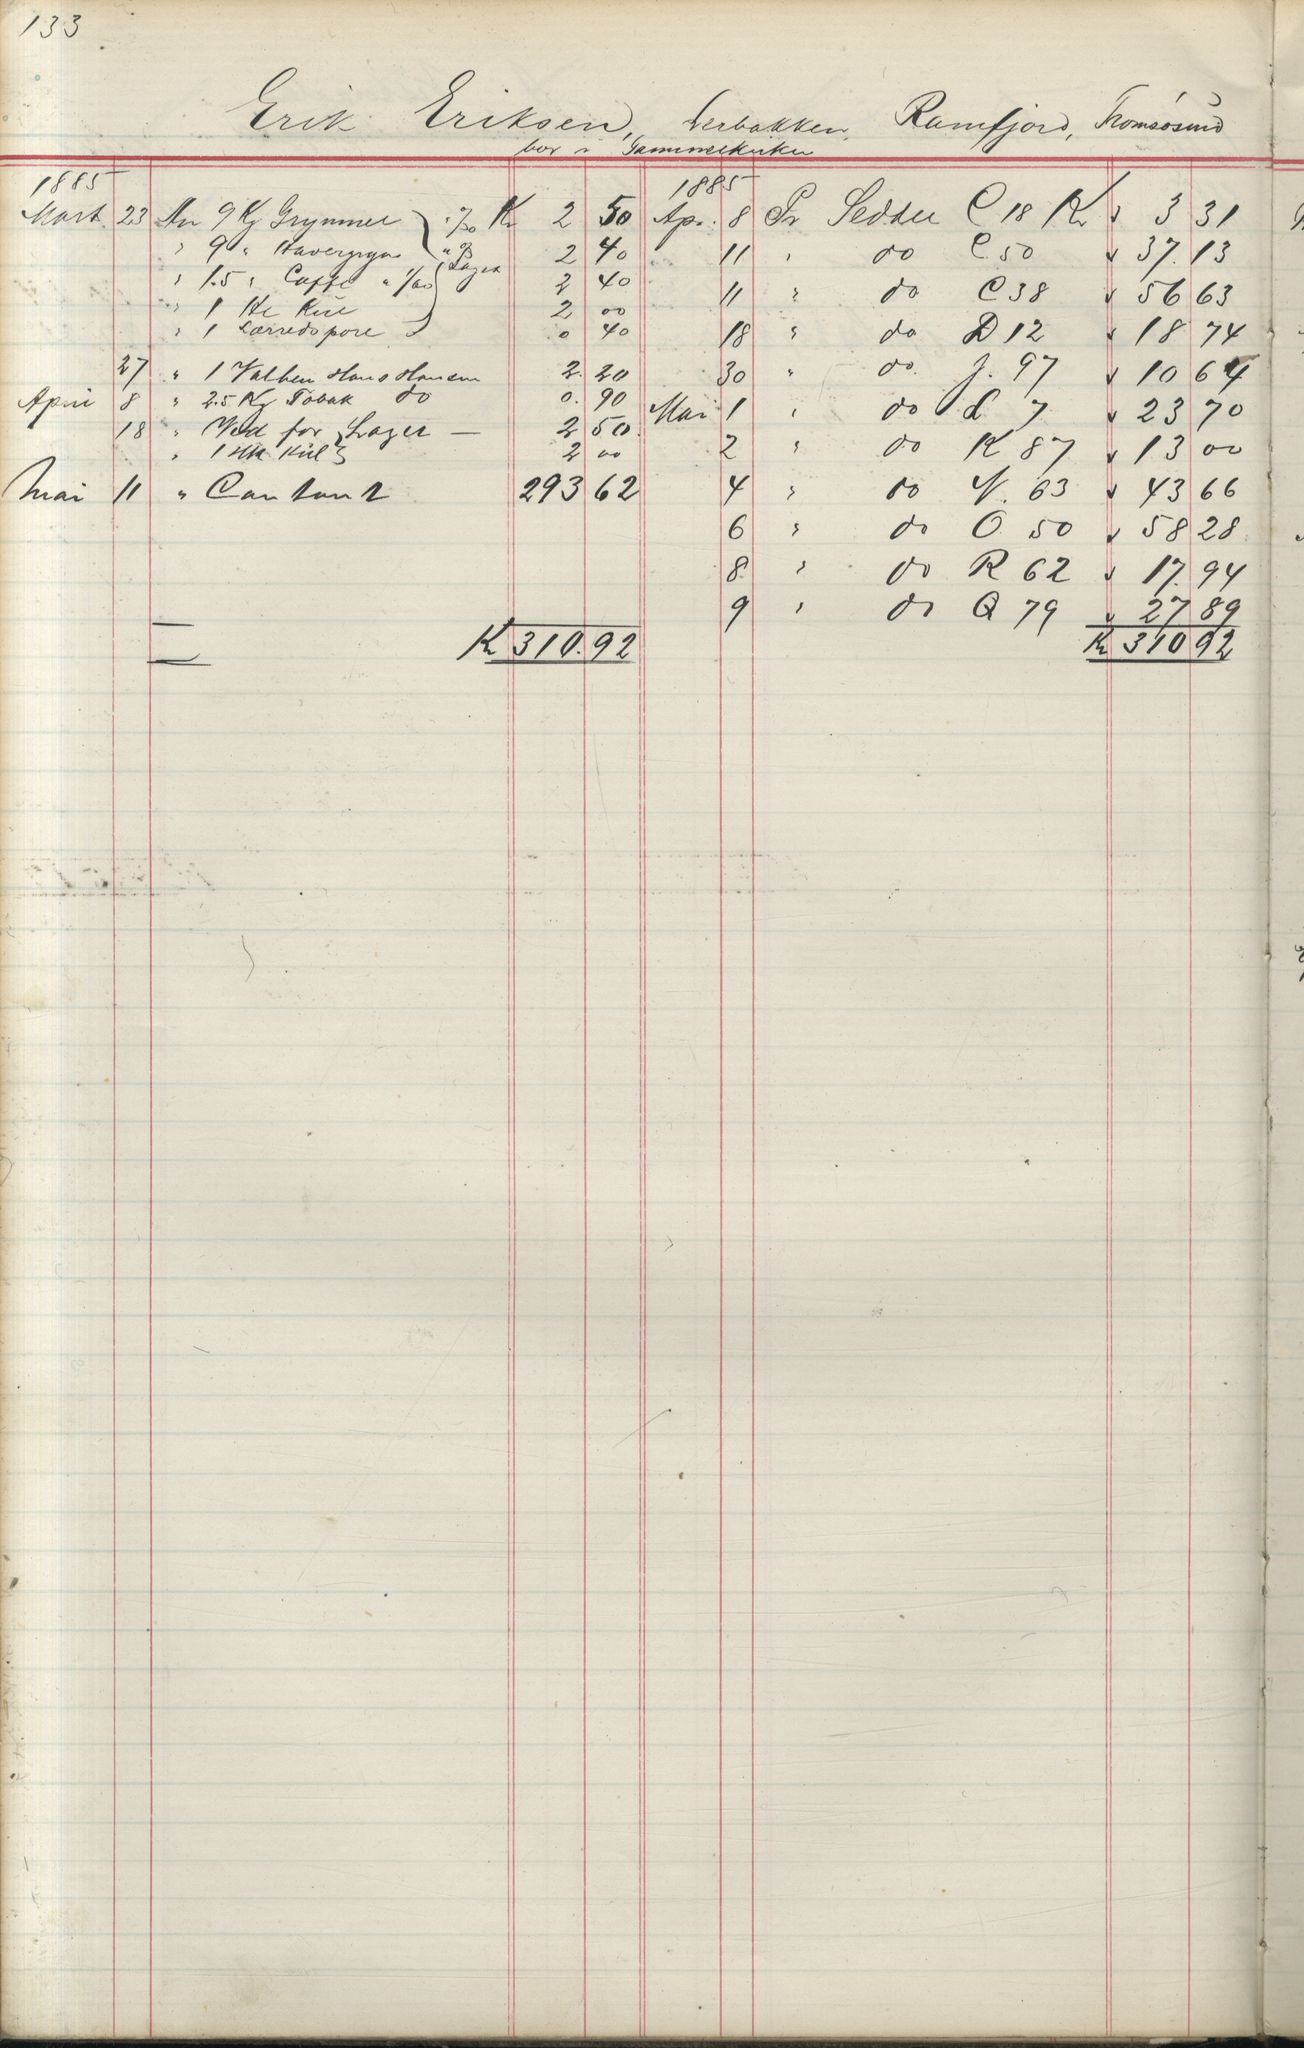 133
Erik Eriksen, Berbakken, Ramfjord, Tromsøsund
bor i Gammelkirken
1885
Mart. 23 An 9 Kg Grynmel Kr 2 50
" 9 " Havregryn 2 40
" 1.5 " Caffe 2 40
" 1 Hl Kul 2 00
" 1 Lærredspose 0 40
Lager
27 " 1 Hans Hansen 2. 20
April 8 " 2.5 Kg Tobak do 0. 90
18 " Ved for Lager — 2 50
" 1 Hl Kul 2 00
Mai 11 " Contant 293 62
Kr 310. 92
1885
Ap. 8 Pr Seddel C 18 Kr 3 31
11 " do C 50 37. 13
11 " do C 38 56 63
18 " do D 12 18 74
30 " do. J. 97 10 64
Mai 1 " do L 7 23 70
2 " do K 87 13 00
4 " do N. 63 43 66
6 " do O. 50 58 28
8 " do R 62 17. 94
9 " do Q 79 27 89
Kr 310 92